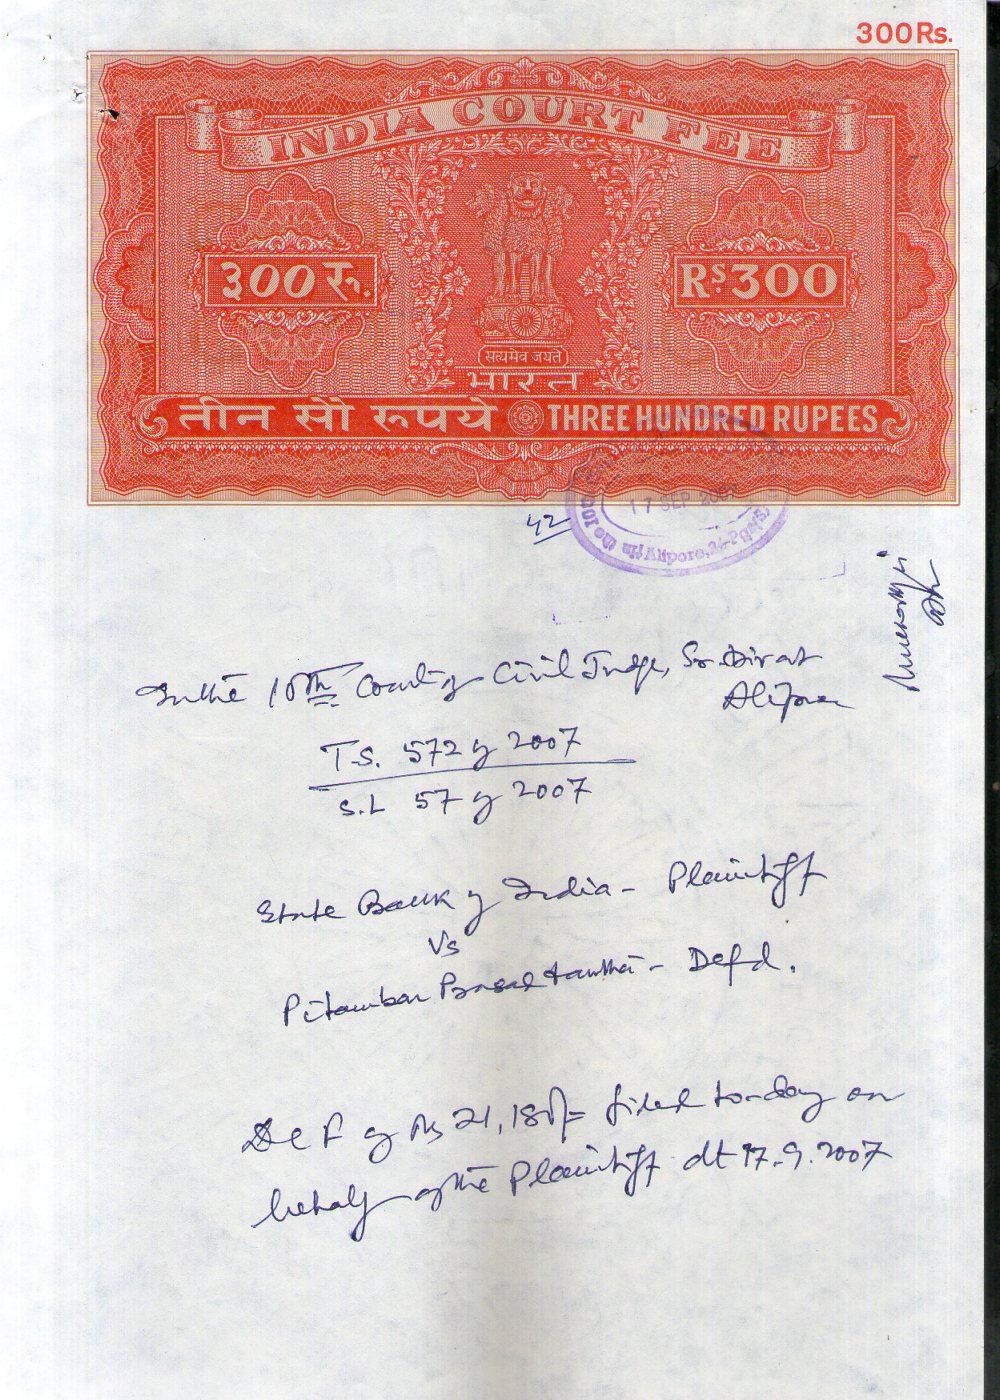 300Rs.
INDIA COURT FEE
३00 रु.
RS. 300
सत्यमेव जयते
भारत
तीन सौ रुपये THREE HUNDRED RUPEES
17 SEP
Alipore, 24-Pgs(S)
42
In the 10th Court of Civil Judge, Sr. Div at
Alipore
T.S. 572 of 2007
S.L 57 of 2007
State Bank of India - Plaintiff
Vs
Pitambar Prasad - Defd.
of Rs 21,180/= filed to-day on
behalf of the Plaintiff dt 17.9.2007